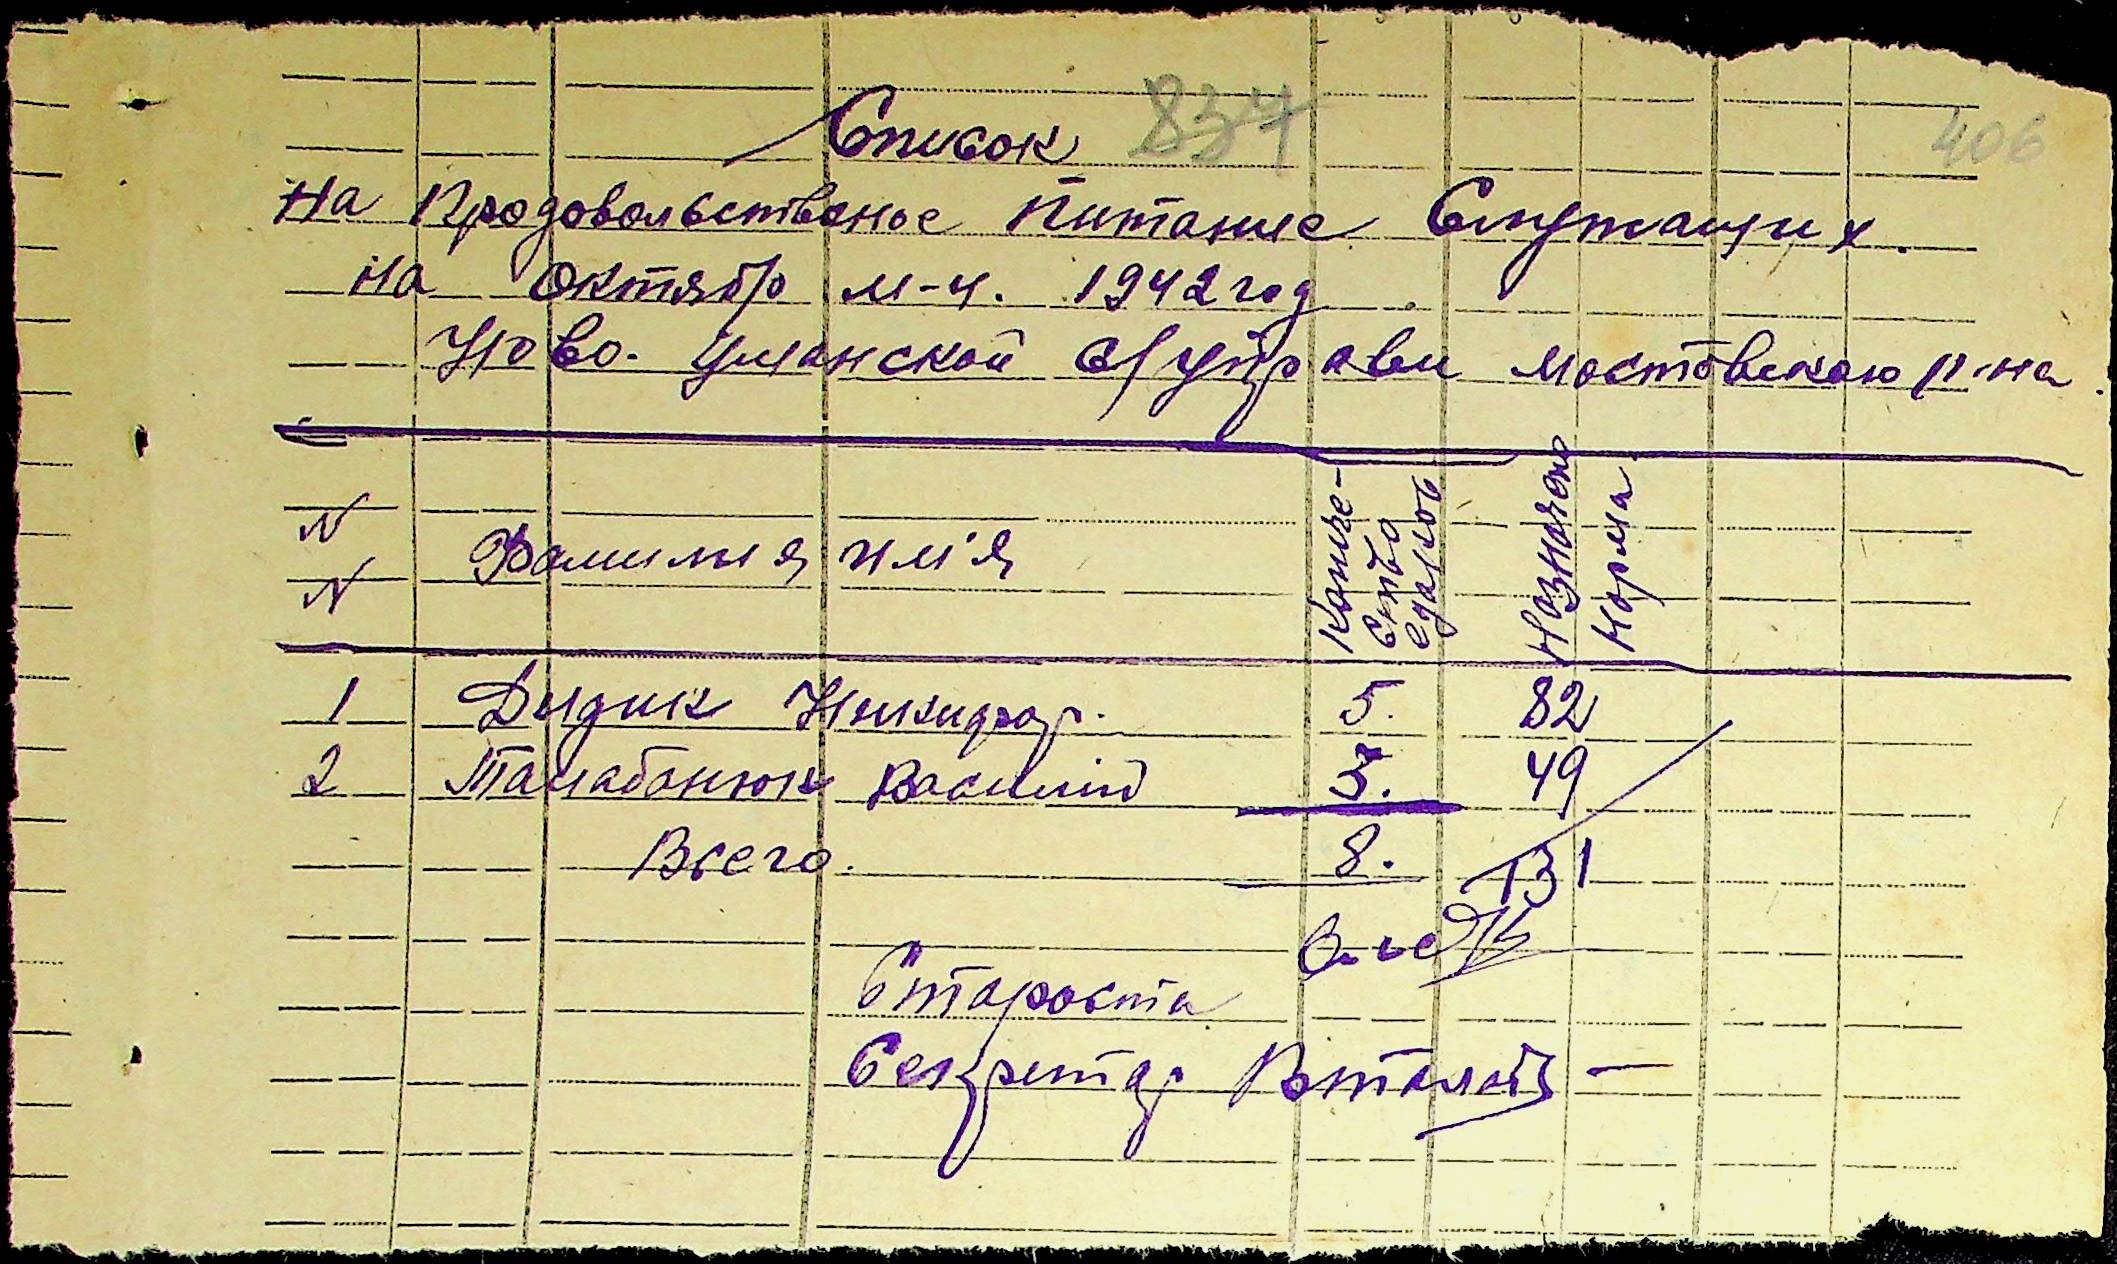 Список 837 406
На Продовольственое Питание Служащих.
на Октябр м-ц. 1942 год
Ново-Уманской с/управи мостовскаю р-на.
N N Фамилия, им'я Количе-ство едаков Назначено Норма
1 Дидик Никифор. 5. 82
2 Талабанюк Василий 3. 49
Всего. 8. 131
Староста
Секретар